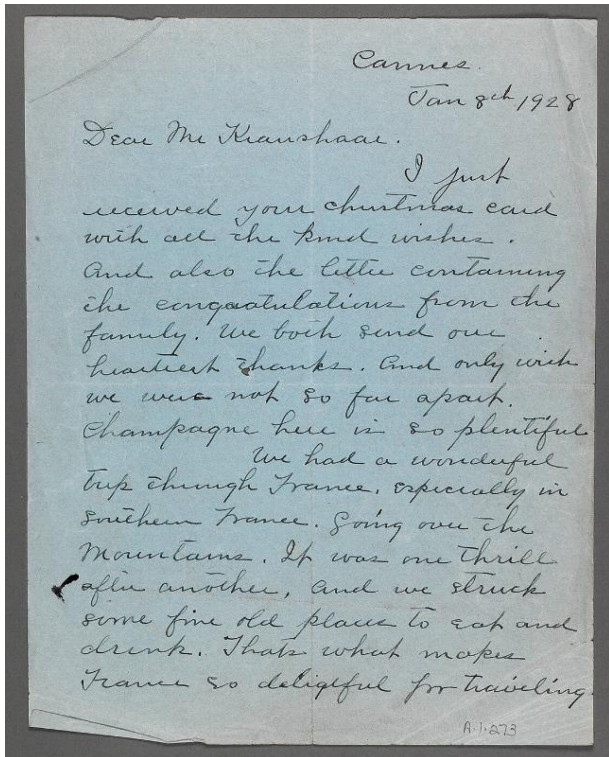 Cannes.
Jan 8th 1928
Dear Mr Kraushaar.
I just
received your christmas card
with all the kind wishes.
And also the letter containing
the congratulations from the
family. We both send our
heartiest thanks. And only wish
we were not so far apart.
Champagne here is so plentiful
We had a wonderful
trip through France, especially in
southern France. Going over the
Mountains. It was one thrill
after another, and we struck
some fine old places to eat and
drink. Thats what makes
France so deligtful for traveling.
A.1.273